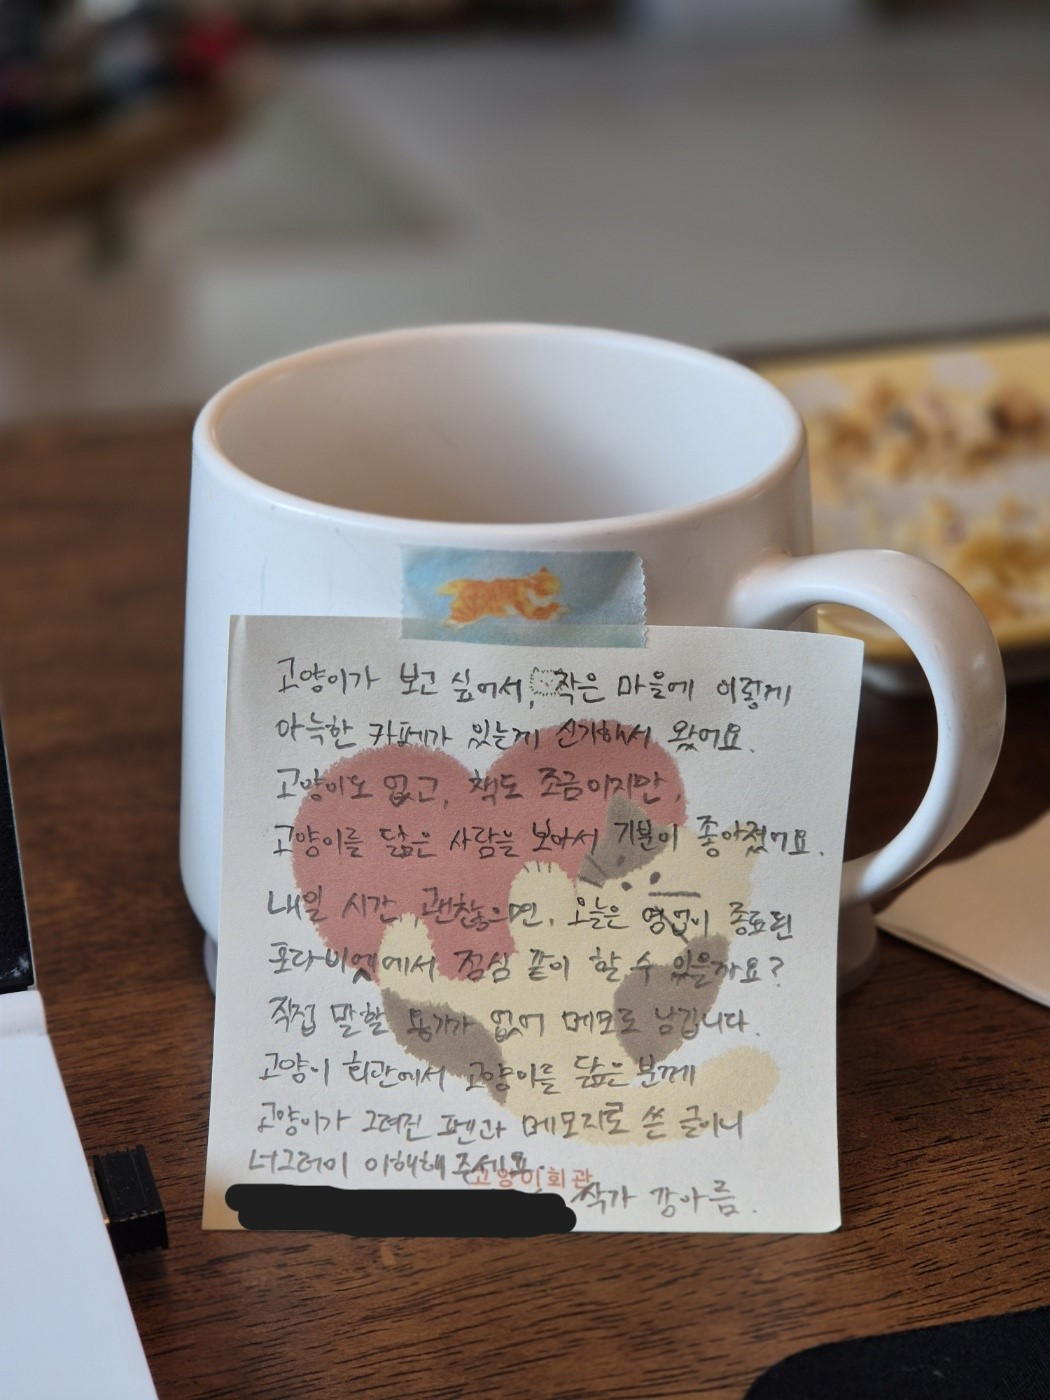 고양이가 보고 싶어서, 작은 마을에 이렇게
아늑한 카페가 있는게 신기해서 왔어요.
고양이도 없고, 책도 조금이지만,
고양이를 닮은 사람을 보아서 기분이 좋아졌어요.
내일 시간 괜찮으면, 오늘은 영업이 종료된
포라비엣에서 점심 같이 할 수 있을까요?
직접 말할 용기가 없어 메모로 남깁니다.
고양이 회관에서 고양이를 닮은 분께
고양이가 그려진 펜과 메모지로 쓴 글이니
너그러이 이해해 주세요.
고양이회관
작가 강아름.